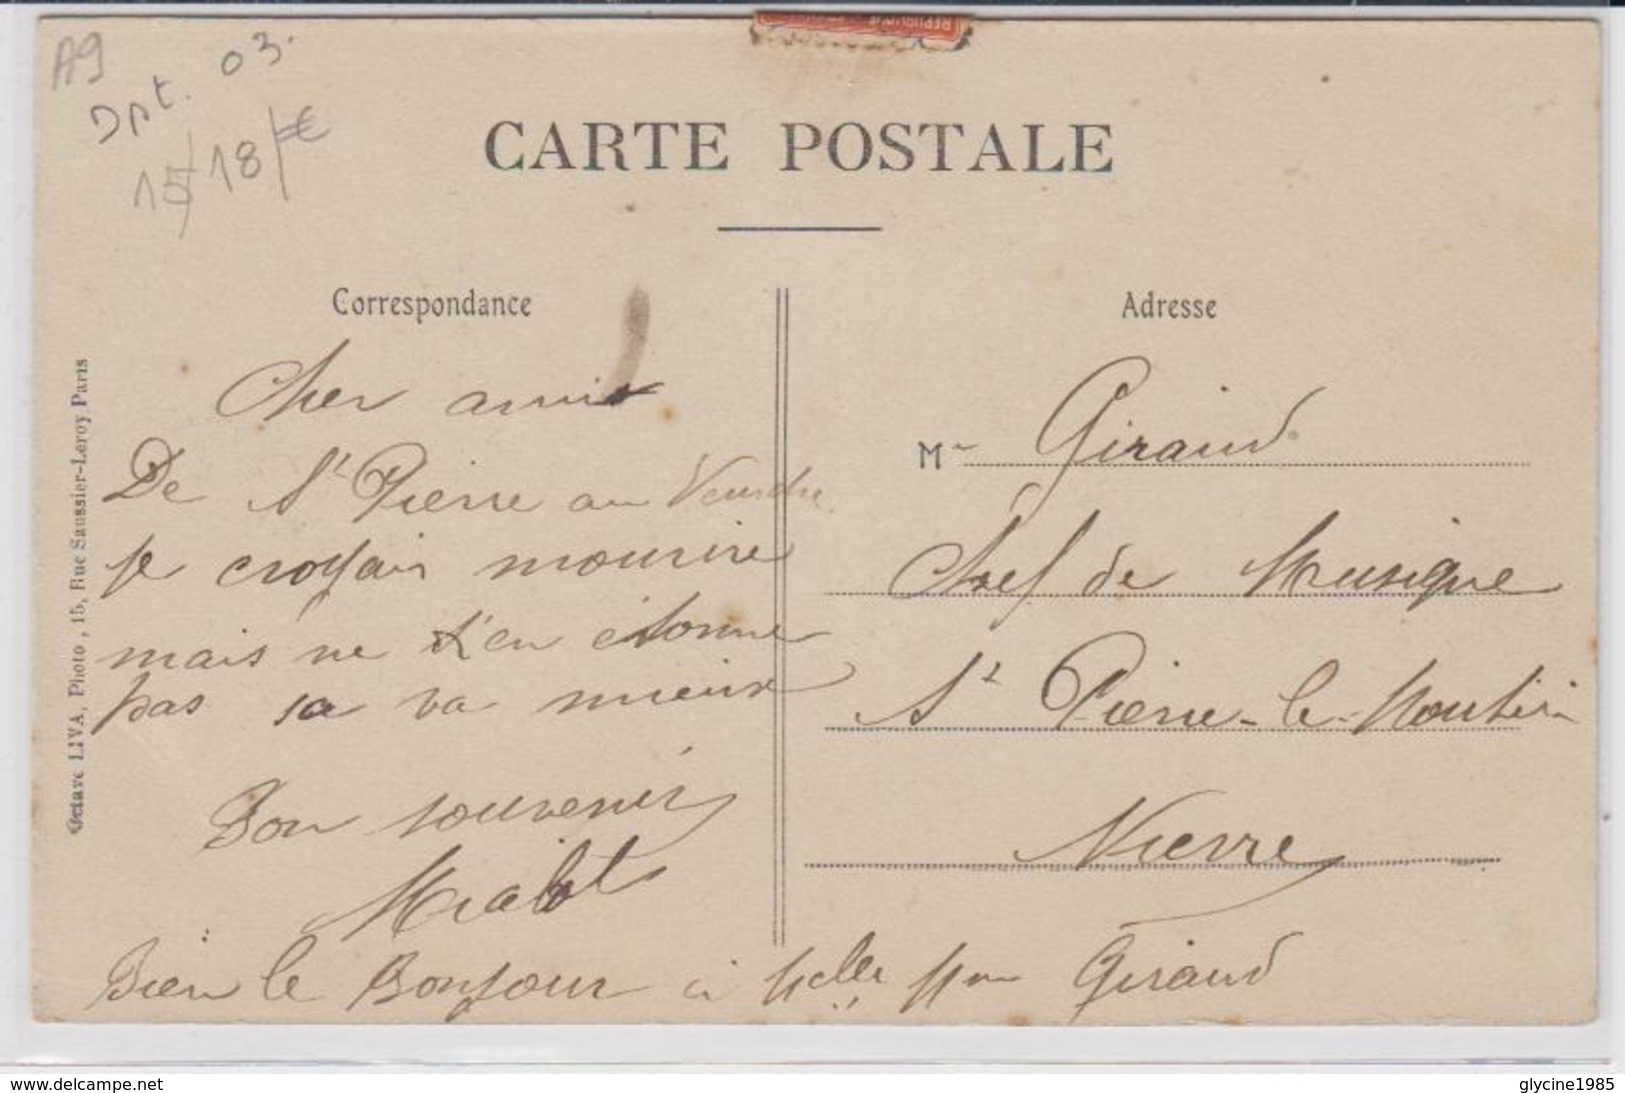 A9
Dpt. 03.
15/ 18/ €
REPUBLIQUE
CARTE POSTALE
Correspondance
Adresse
Octave LIVA, Photo, 15, Rue Saussier-Leroy Paris
Cher ami
De St Pierre au Veurdre
je croyais mourire
mais ne t'en étonne
pas sa va mieux
Bon souvenir
Mialot
Bien le Bonjour à Melle Mme Giraud
Mr Giraud
Chef de Musique
St Pierre-le-Moutier
Nievre
www.delcampe.net
glycine1985